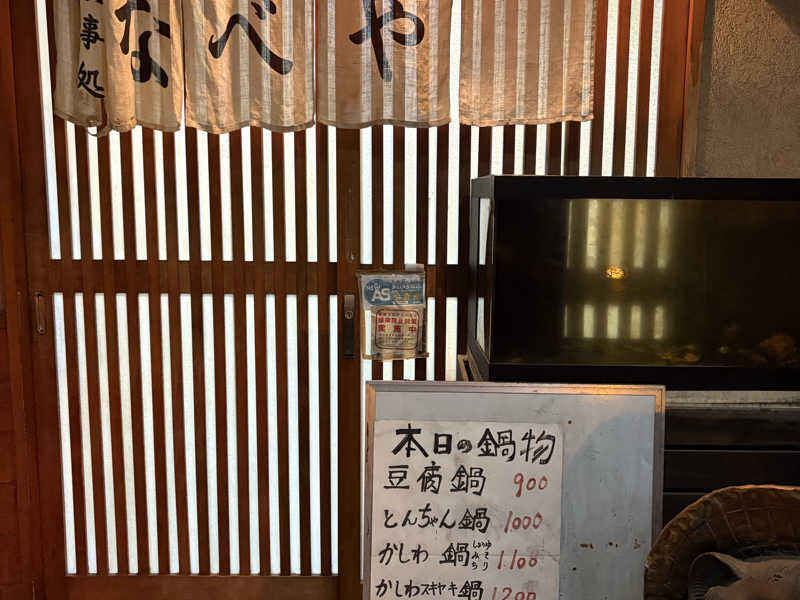 事処
なべや
本日の鍋物
豆腐鍋 900
とんちゃん鍋 1000
かしわ 鍋 しょうゆ みそ 1.100
かしわスキヤキ鍋 1200
AS
実施中